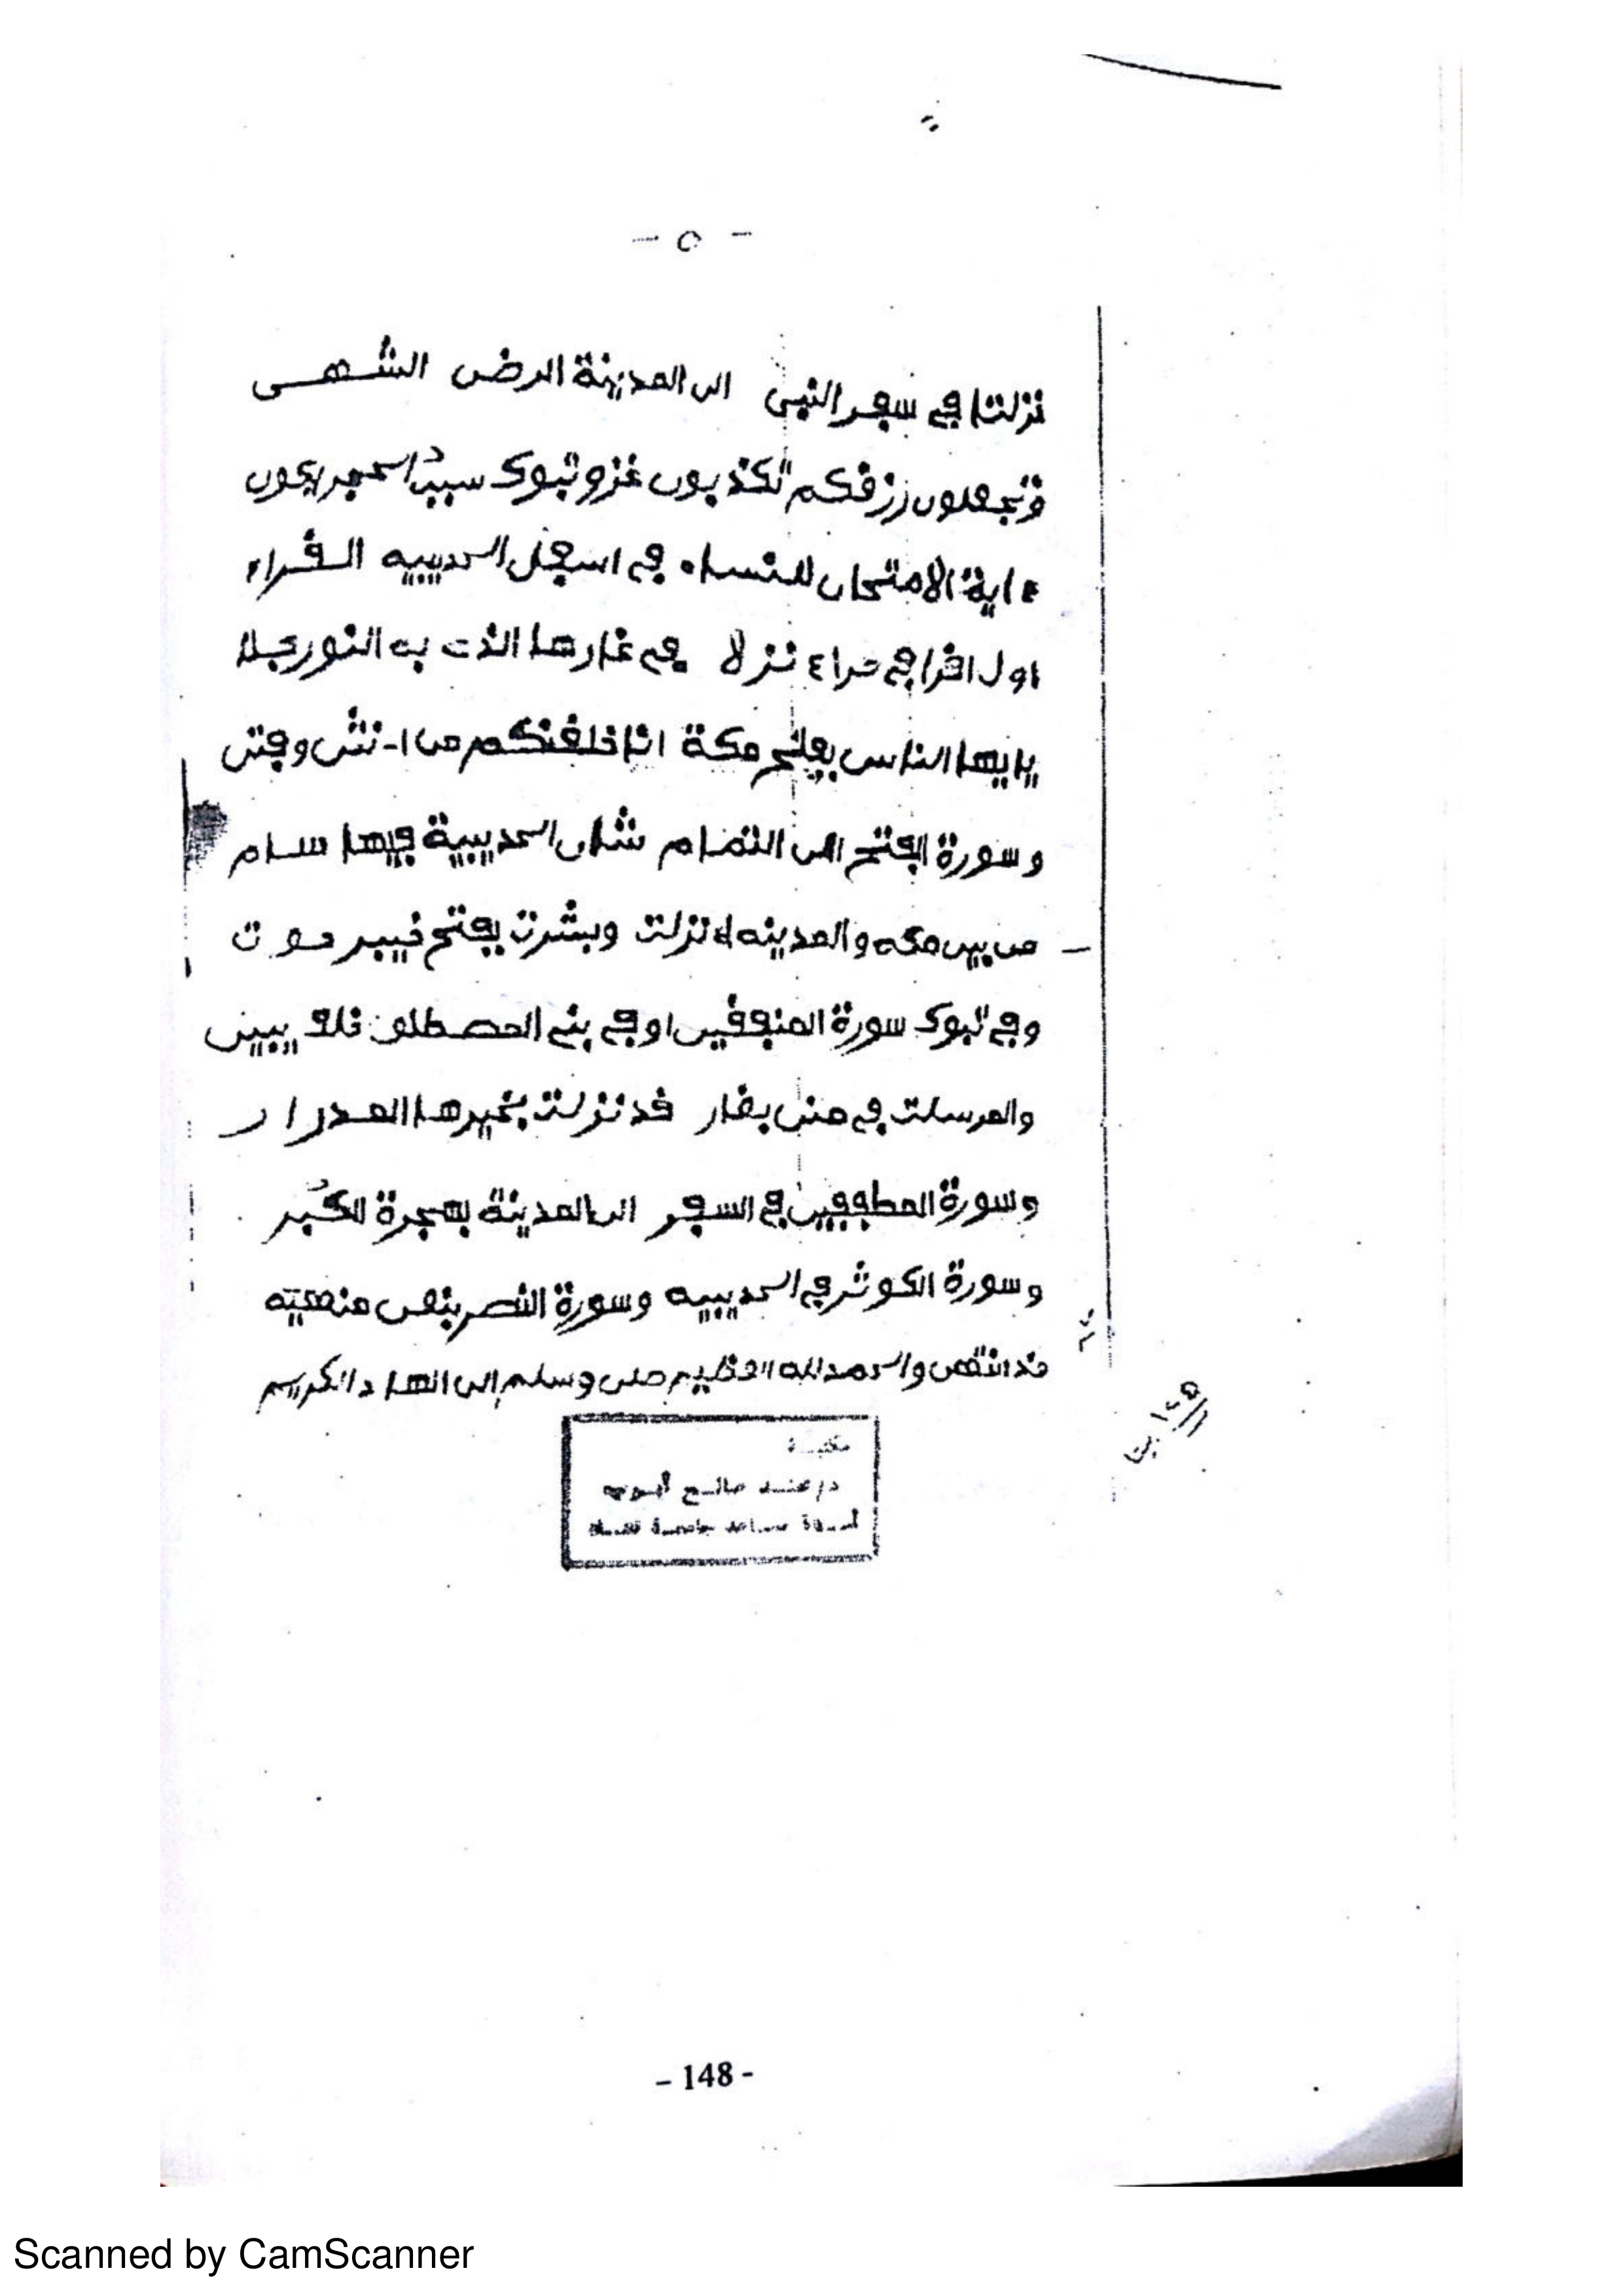 - ٥ -
نزلتا في سفر النبي الى المدينة الرضى الشهى
وتجعلون رزقكم تكذبون غزو تبوك سبب الحجر يكون
ءاية الامتحان للنساء في اسفل الحديبيه القراء
اول اقرا في حراء نزلا في غارها الذي به النور جلا
يايها الناس بفتح مكة انا خلقنكم من انثى وفتى
وسورة الفتح الى التمام شان الحديبية فيها سام
من بين مكه والمدينه نزلت وبشرت بفتح خيبر حوت
وفي تبوك سورة المنفقين او في بني المصطلق
والمرسلت في منى بغار قد نزلت بخيرها المدرار
وسورة المطففين في السفر الى المدينة بهجرة
وسورة الكوثر في الحديبيه وسورة النصر بنفس
قد انتهى والحمد لله العظيم صلى وسلم الى الهاد الكريم
مكتبة
- 148 -
Scanned by CamScanner